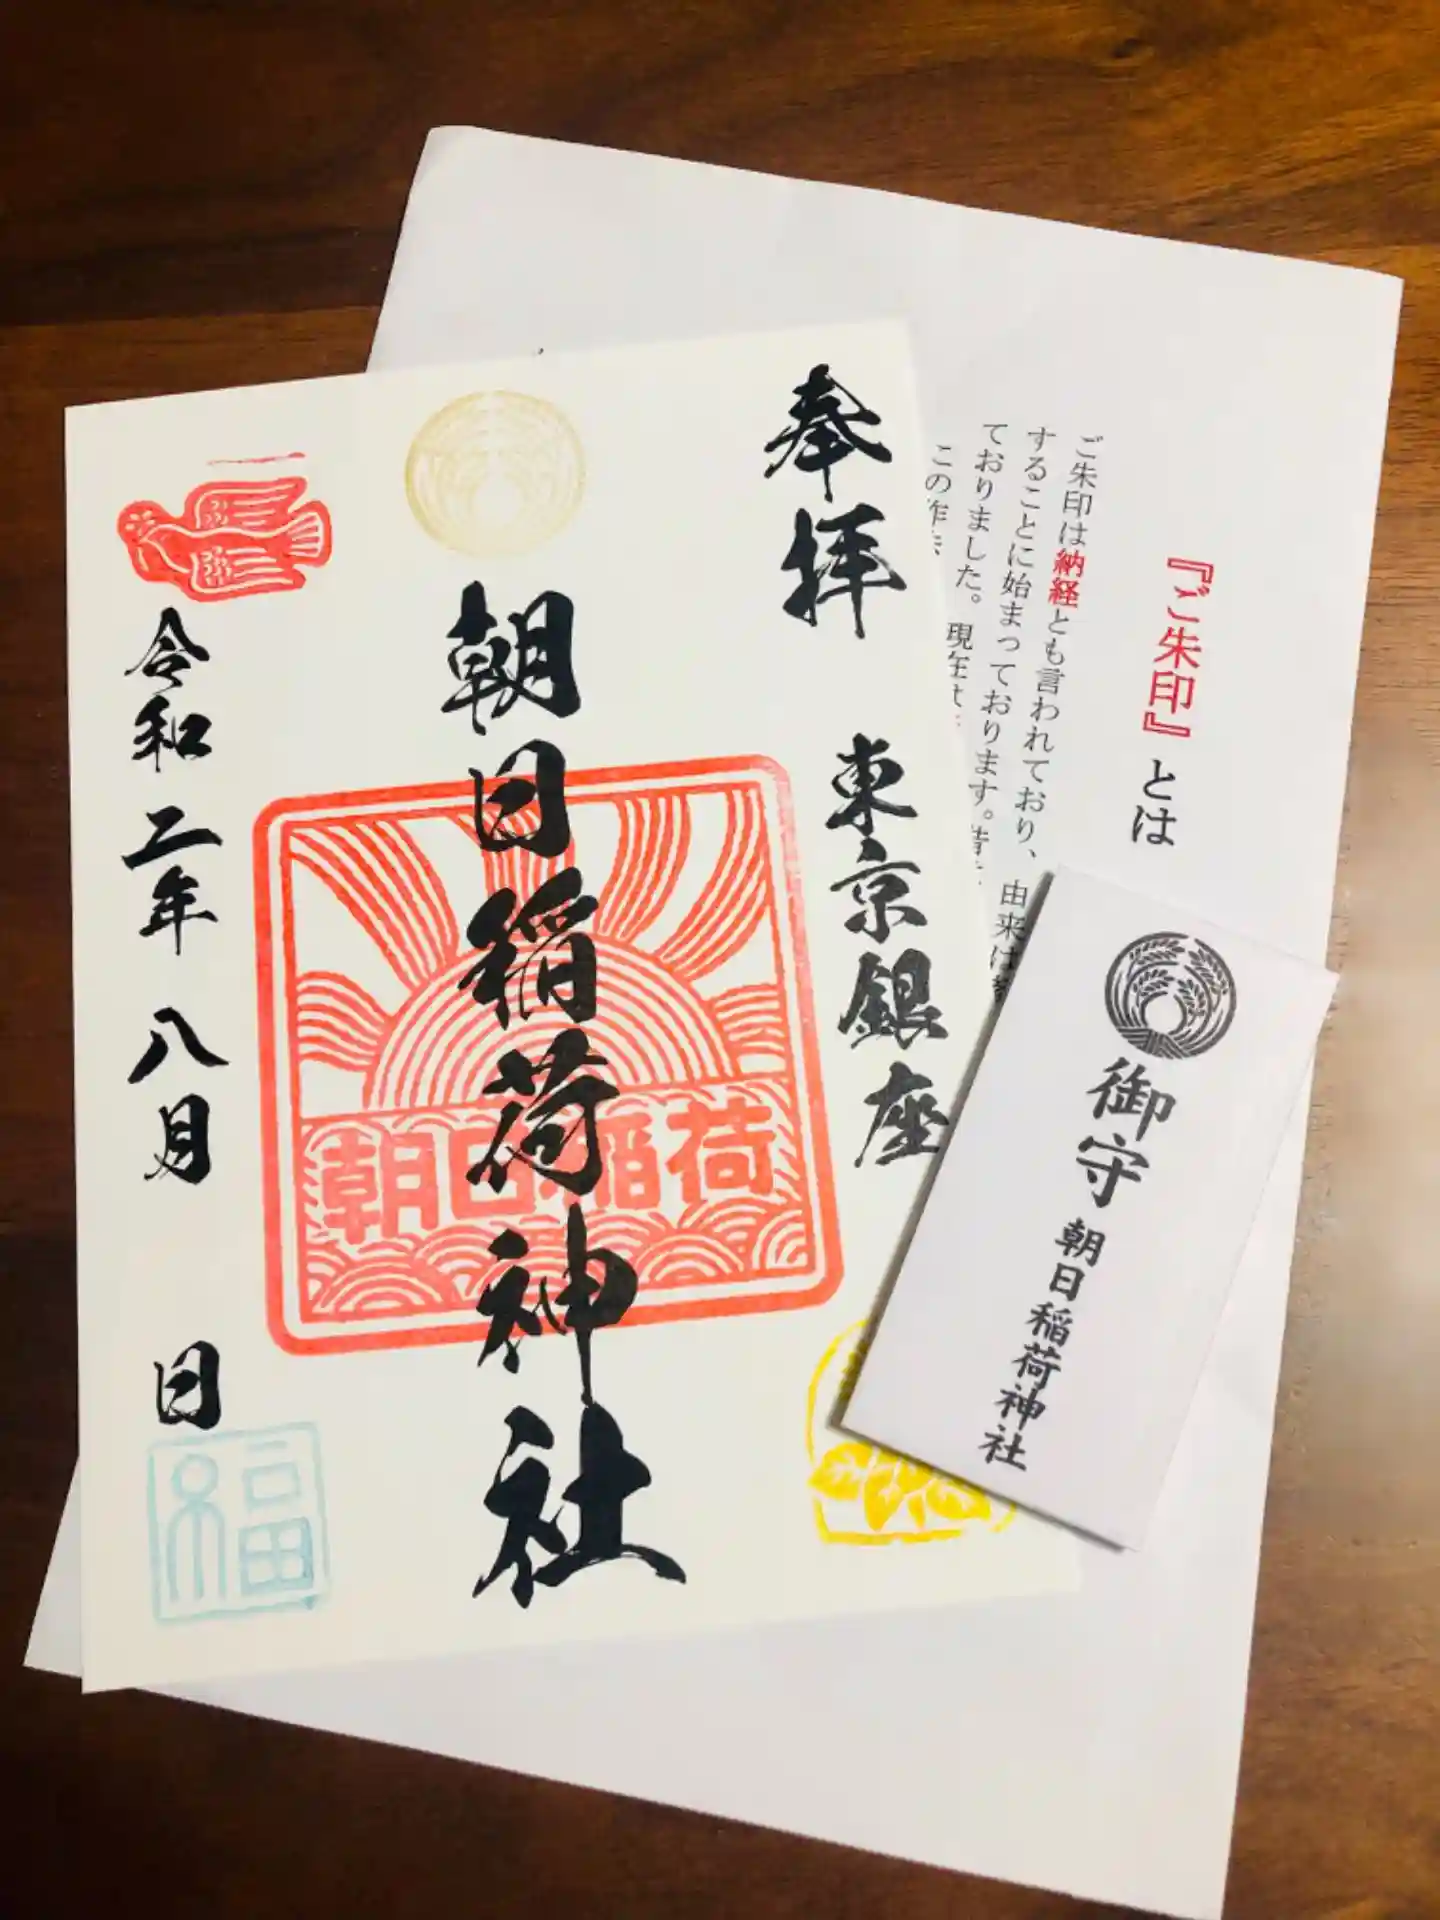 『ご朱印』とは
ご朱印は納経とも言われており、由来は
することに始まっております。昔
ておりました。現在は
この作
奉拝
東京銀座
朝日稲荷神社
朝日稲荷
令和二年八月 日
福
御守
朝日稲荷神社